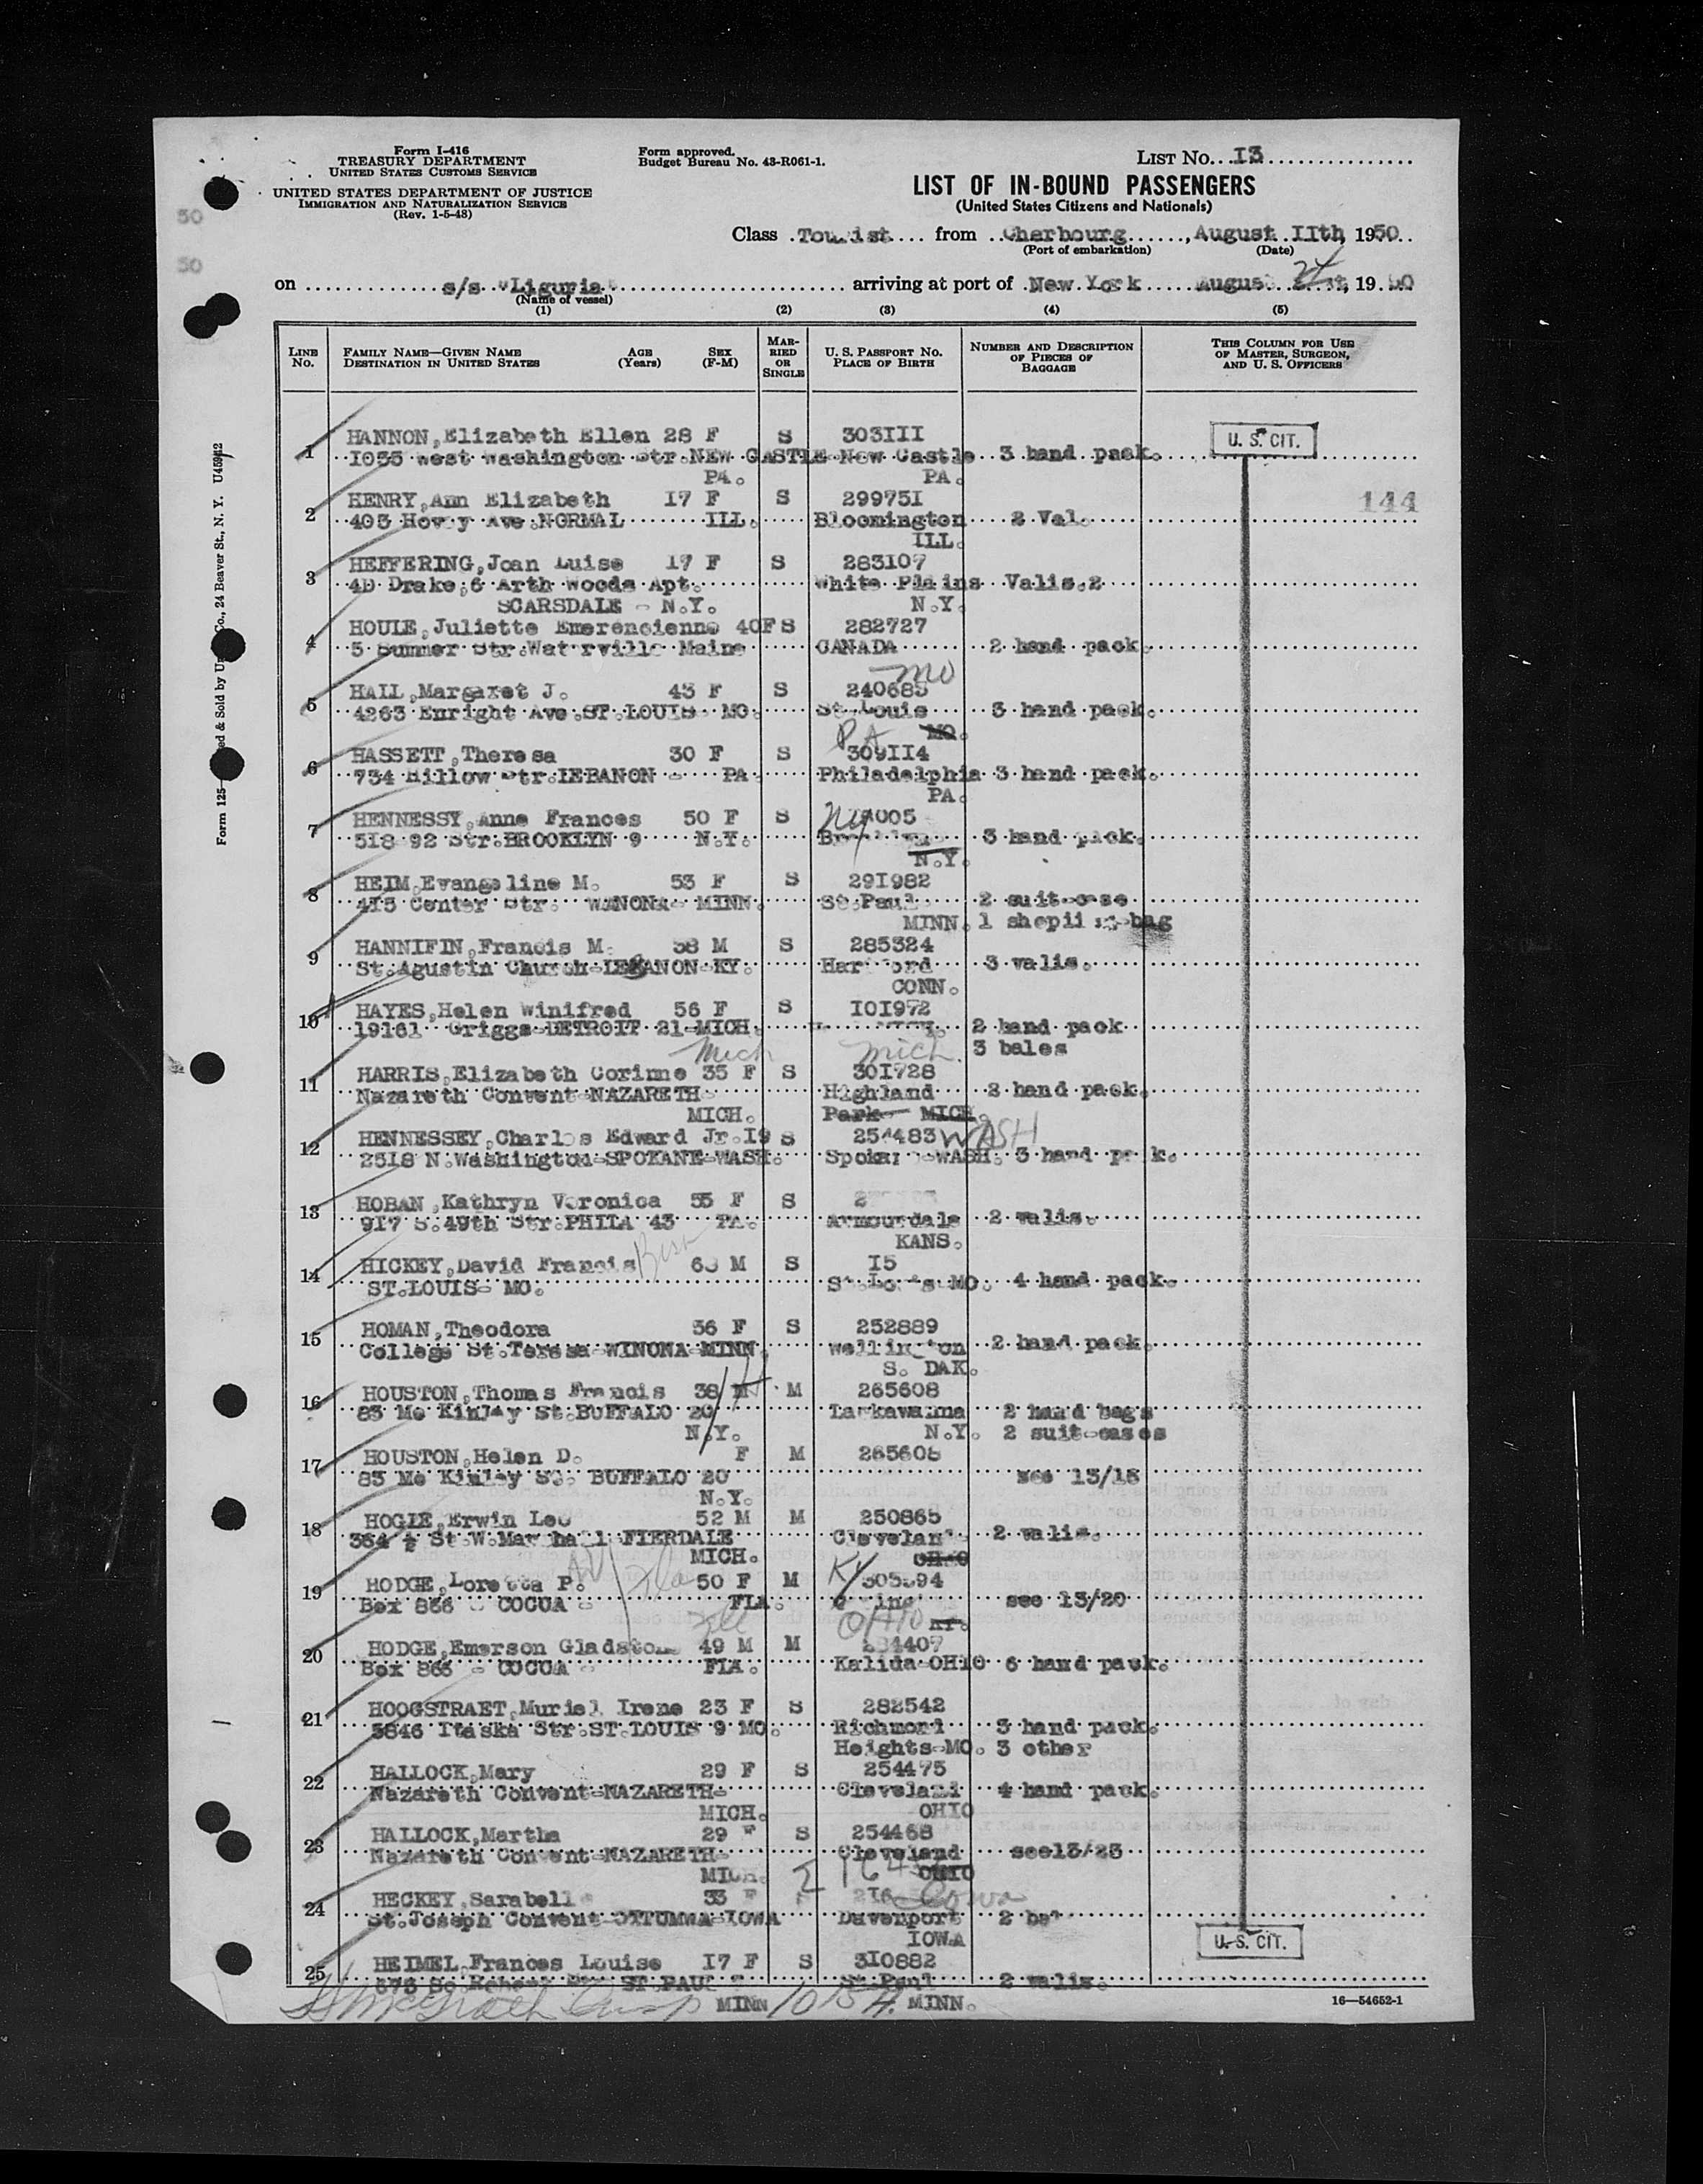 Form I-416
TREASURY DEPARTMENT
UNITED STATES CUSTOMS SERVICE
UNITED STATES DEPARTMENT OF JUSTICE
IMMIGRATION AND NATURALIZATION SERVICE
(Rev. 1-5-48)
Form approved.
Budget Bureau No. 43-R061-1.
LIST No. I3
LIST OF IN-BOUND PASSENGERS
(United States Citizens and Nationals)
Class Tourist from Cherbourg, August IIth, 1950
(Port of embarkation) (Date)
on s/s "Liguria" arriving at port of New York August 24, 1950
(Name of vessel)
(1) (2) (3) (4) (5)
LINE No. FAMILY NAME—GIVEN NAME DESTINATION IN UNITED STATES AGE (Years) SEX (F-M) MARRIED OR SINGLE U. S. PASSPORT NO. PLACE OF BIRTH NUMBER AND DESCRIPTION OF PIECES OF BAGGAGE THIS COLUMN FOR USE OF MASTER, SURGEON, AND U. S. OFFICERS
50
50
Form 125 ed & Sold by Co., 24 Beaver St., N. Y.
U. S. CIT.
144
1 HANNON,Elizabeth Ellen 28 F S 303III
I035 West Washington Str.NEW CASTLE New Castle 3 hand pack.
PA. PA.
2 HENRY,Ann Elizabeth I7 F S 29975I
403 Ave.NORMAL ILL. Bloomington 2 Val.
ILL.
3 HEFFERING,Joan Luise 17 F S 283107
4D Drake;6 Arth Woods Apt. White Plains Valis.2
SCARSDALE - N.Y. N.Y.
4 HOULE,Juliette Emerencienne 40F S 282727
5 Summer Str.Waterville Maine CANADA 2 hand pack.
Mo
5 HALL,Margaret J. 43 F S 240685
4263 Enright Ave.ST.LOUIS- MO. St.Louis 3 hand pack.
PA MO.
6 HASSETT,Theresa 30 F S 309II4
734 Str.LEBANON - PA. Philadelphia 3 hand pack.
PA.
7 HENNESSY,Anne Frances 50 F S NY 005
518 92 Str.BROOKLYN 9 N.Y. 3 hand pack.
N.Y.
8 HEIM,Evangeline M. 53 F S 29I982
415 Center Str. WANONA- MINN. St.Paul 2 suit-case
MINN. 1 bag
9 HANNIFIN,Francis M. 58 M S 285324
St.Agustin Church-LEBANON-KY. Hartford 3 valis.
CONN.
10 HAYES,Helen Winifred 56 F S IOI972
19161 Griggs-DETROIT 21-MICH. 2 hand pack
Mich Mich. 3 bales
11 HARRIS,Elizabeth Corinne 35 F S 30I728
Nazareth Convent-NAZARETH- Highland 2 hand pack.
MICH. Park- MICH.
12 HENNESSEY,Charles Edward Jr.I9 S 254483 WASH
2518 N.Washington-SPOKANE-WASH. Spokane-WASH. 3 hand pack.
13 HOBAN,Kathryn Veronica 55 F S
917 S.49th Str.PHILA 43 PA. Armourdale 2 valis.
KANS.
14 HICKEY,David Francis M S I5
ST.LOUIS- MO. St.Louis-MO. 4 hand pack.
15 HOMAN,Theodora 36 F S 252889
College St.Teresa-WINONA-MINN. 2 hand pack.
S. DAK.
16 HOUSTON,Thomas Francis 38 M M 265608
83 Mc Kinley St.BUFFALO 20 Lackawanna 2 hand bags
N.Y. N.Y. 2 suit-cases
17 HOUSTON,Helen D. F M 265608
83 Mc Kinley St. BUFFALO 20 see 13/16
N.Y.
18 HOGLE,Erwin Leo 52 M M 250865
364 ½ St.W.Marshall-FIERDALE Cleveland 2 valis.
MICH. OHIO
19 HODGE,Loretta P. 50 F M KY
Box 866 - COCUA - FLA. see 13/20
OHIO KY.
20 HODGE,Emerson Gladstone 49 M M
Box 866 - COCUA - FLA. Kalida-OHIO 6 hand pack.
21 HOOGSTRAET,Muriel Irene 23 F S 282542
5846 Itaska Str.ST.LOUIS 9 MO. Richmond 3 hand pack.
Heights-MO. 3 other
22 HALLOCK,Mary 29 F S 254475
Nazareth Convent-NAZARETH- Cleveland 4 hand pack.
MICH. OHIO
23 HALLOCK,Martha 29 F S 254468
Nazareth Convent-NAZARETH- Cleveland see13/23
MICH. OHIO
24 HECKEY,Sarabell 33 F Iowa
St.Joseph Convent-OTTUMWA-IOWA Davenport 2
IOWA
U. S. CIT.
25 HEIMEL,Frances Louise I7 F S 3I0882
Str. ST.PAUL St.Paul 2 valis.
MINN MINN.
16—54652-1